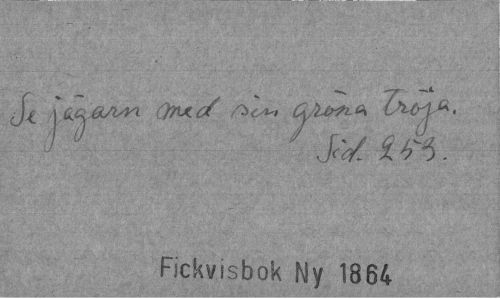 Se jägarn med sin gröna tröja.
Sid. 253.
Fickvisbok Ny 1864